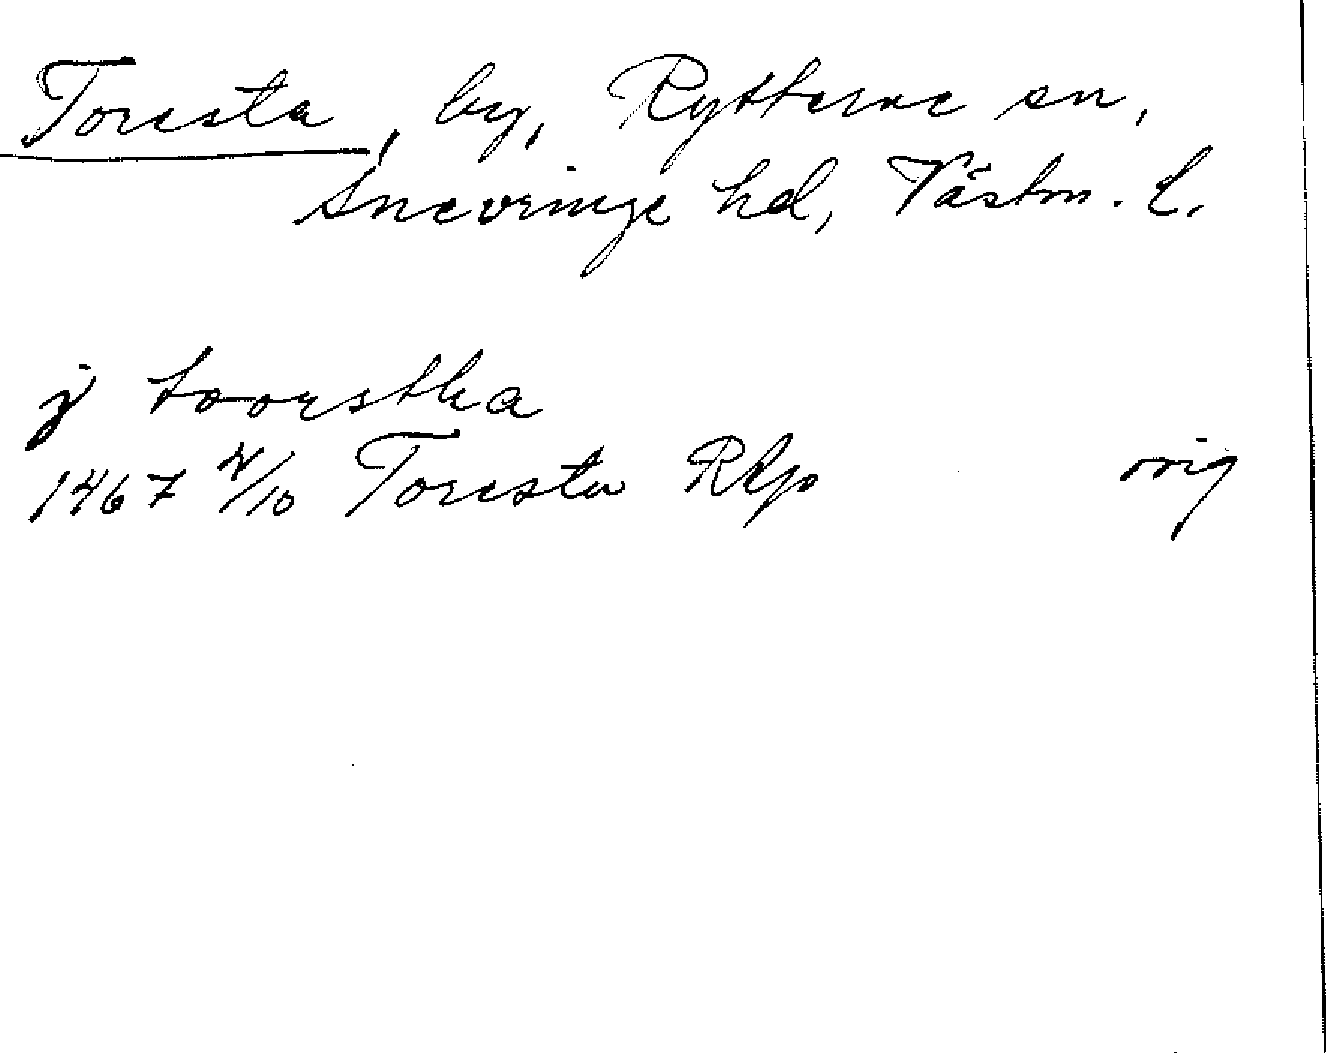 Toresta, by, Rytterne sn,
Snevringe hd, Västm. L.
j toorstha
1467 2/10 Toresta RAp orig